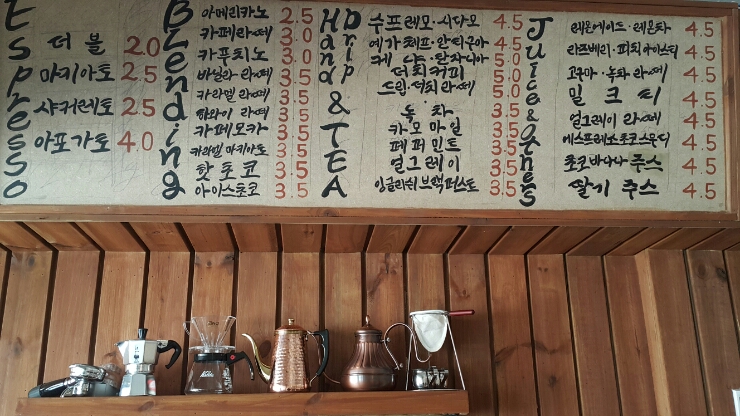 Espresso
더블 2.0
마키아토 2.5
샤커레토 2.5
아포가토 4.0
Blending
아메리카노 2.5
카페라떼 3.0
카푸치노 3.0
바닐라 라떼 3.5
카라멜 라떼 3.5
하와이 라떼 3.5
카페모카 3.5
카라멜 마키아토 3.5
핫초코 3.5
아이스초코 3.5
Hand Drip & TEA
수프레모·시다모 4.5
예가체프·안티구아 4.5
케냐·탄자니아 5.0
더치커피 5.0
드립·더치라떼 5.0
녹차 3.5
카모마일 3.5
페퍼민트 3.5
얼그레이 3.5
잉글리쉬 브랙퍼스트 3.5
Juice & Others
레몬에이드·레몬차 4.5
라즈베리·피치아이스티 4.5
고구마·녹차 라떼 4.5
밀크티 4.5
얼그레이 라떼 4.5
에스프레소초코스무디 4.5
초코바나나 주스 4.5
딸기 주스 4.5
Kalita